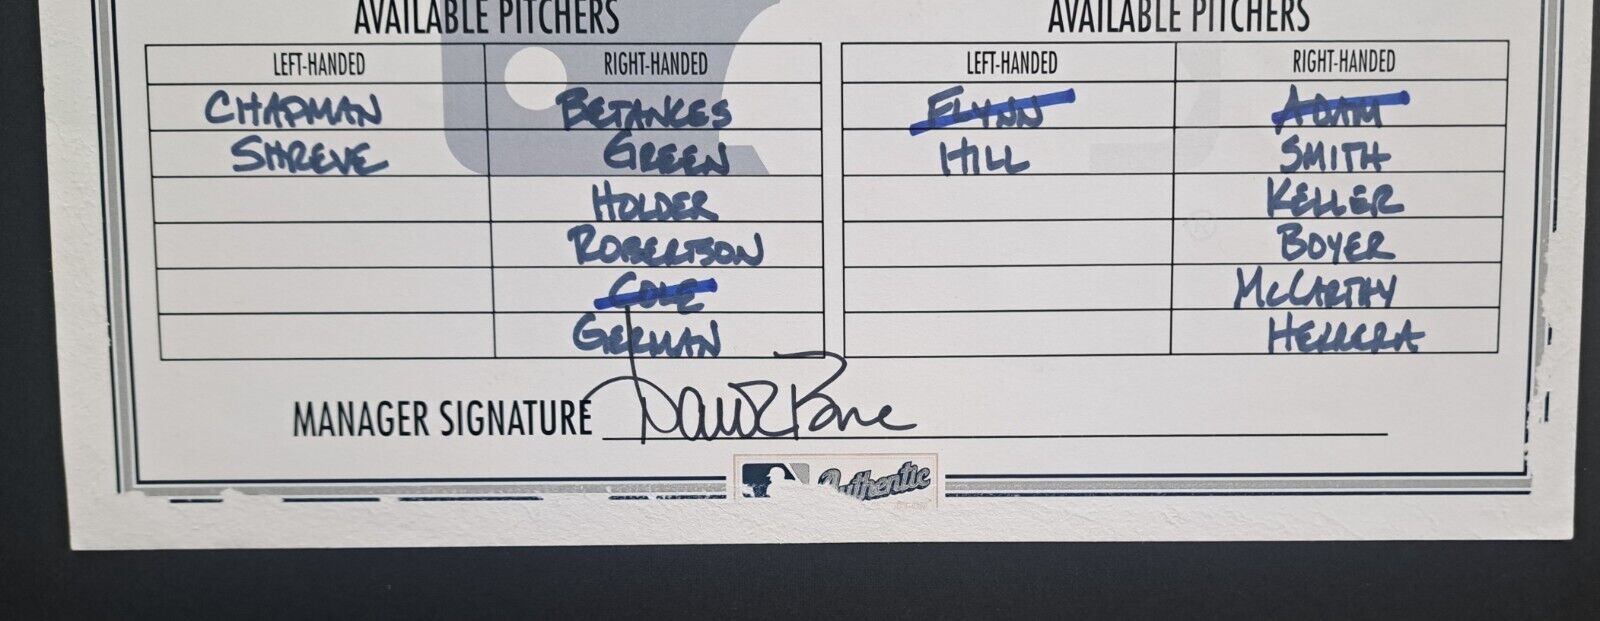 AVAILABLE PITCHERS AVAILABLE PITCHERS
LEFT-HANDED RIGHT-HANDED LEFT-HANDED RIGHT-HANDED
CHAPMAN BETANCES FLYNN ADAM
SHREVE GREEN HILL SMITH
HOLDER KELLER
ROBERTSON BOYER
COLE MCCARTHY
GERMAN HERRERA
MANAGER SIGNATURE
Authentic